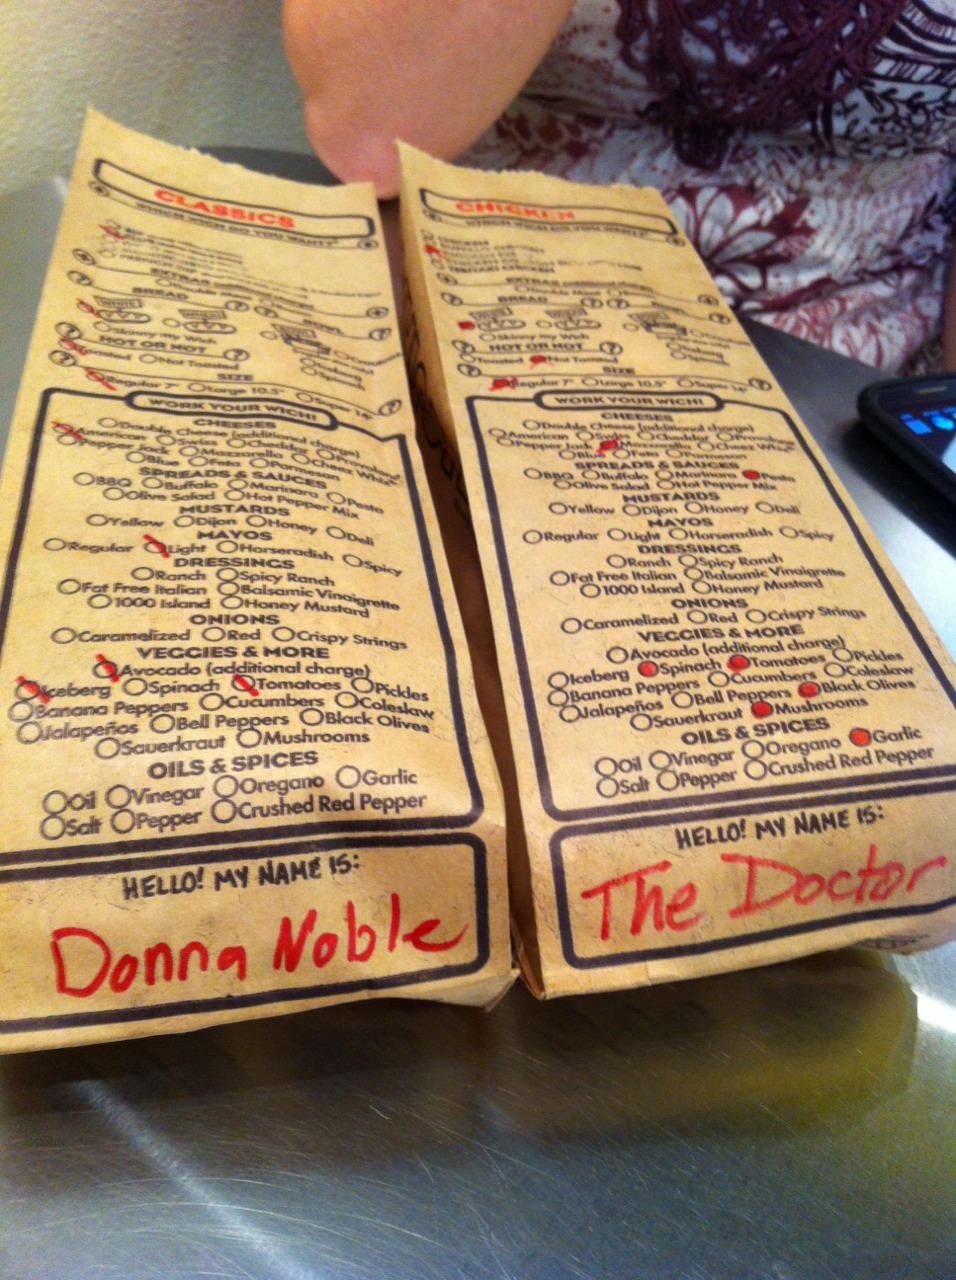 CLASSICS
WHICH WICH DO YOU WANT?
EXTRAS
BREAD
WHITE
Skinny my Wich
HOT OR NOT
Toasted Not Toasted
SIZE
Regular 7" Large 10.5" Super 14"
WORK YOUR WICH!
CHEESES
Double Cheese (additional charge)
American Swiss Cheddar Provolone
Pepper Jack Mozzarella Cheez Whiz
Blue Feta Parmesan
SPREADS & SAUCES
BBQ Buffalo Marinara Pesto
Olive Salad Hot Pepper Mix
MUSTARDS
Yellow Dijon Honey Deli
MAYOS
Regular Light Horseradish Spicy
DRESSINGS
Ranch Spicy Ranch
Fat Free Italian Balsamic Vinaigrette
1000 Island Honey Mustard
ONIONS
Caramelized Red Crispy Strings
VEGGIES & MORE
Avocado (additional charge)
Iceberg Spinach Tomatoes Pickles
Banana Peppers Cucumbers Coleslaw
Jalapeños Bell Peppers Black Olives
Sauerkraut Mushrooms
OILS & SPICES
Oil Vinegar Oregano Garlic
Salt Pepper Crushed Red Pepper
HELLO! MY NAME IS:
Donna Noble
CHICKEN
WHICH WICH DO YOU WANT?
CHICKEN
TERIYAKI CHICKEN
EXTRAS
BREAD
Skinny my Wich
HOT OR NOT
Toasted Not Toasted
SIZE
Regular 7" Large 10.5" Super 14"
WORK YOUR WICH!
CHEESES
Double Cheese (additional charge)
American Swiss Cheddar Provolone
Pepper Jack Mozzarella Cheez Whiz
Blue Feta Parmesan
SPREADS & SAUCES
BBQ Buffalo Marinara Pesto
Olive Salad Hot Pepper Mix
MUSTARDS
Yellow Dijon Honey Deli
MAYOS
Regular Light Horseradish Spicy
DRESSINGS
Ranch Spicy Ranch
Fat Free Italian Balsamic Vinaigrette
1000 Island Honey Mustard
ONIONS
Caramelized Red Crispy Strings
VEGGIES & MORE
Avocado (additional charge)
Iceberg Spinach Tomatoes Pickles
Banana Peppers Cucumbers Coleslaw
Jalapeños Bell Peppers Black Olives
Sauerkraut Mushrooms
OILS & SPICES
Oil Vinegar Oregano Garlic
Salt Pepper Crushed Red Pepper
HELLO! MY NAME IS:
The Doctor